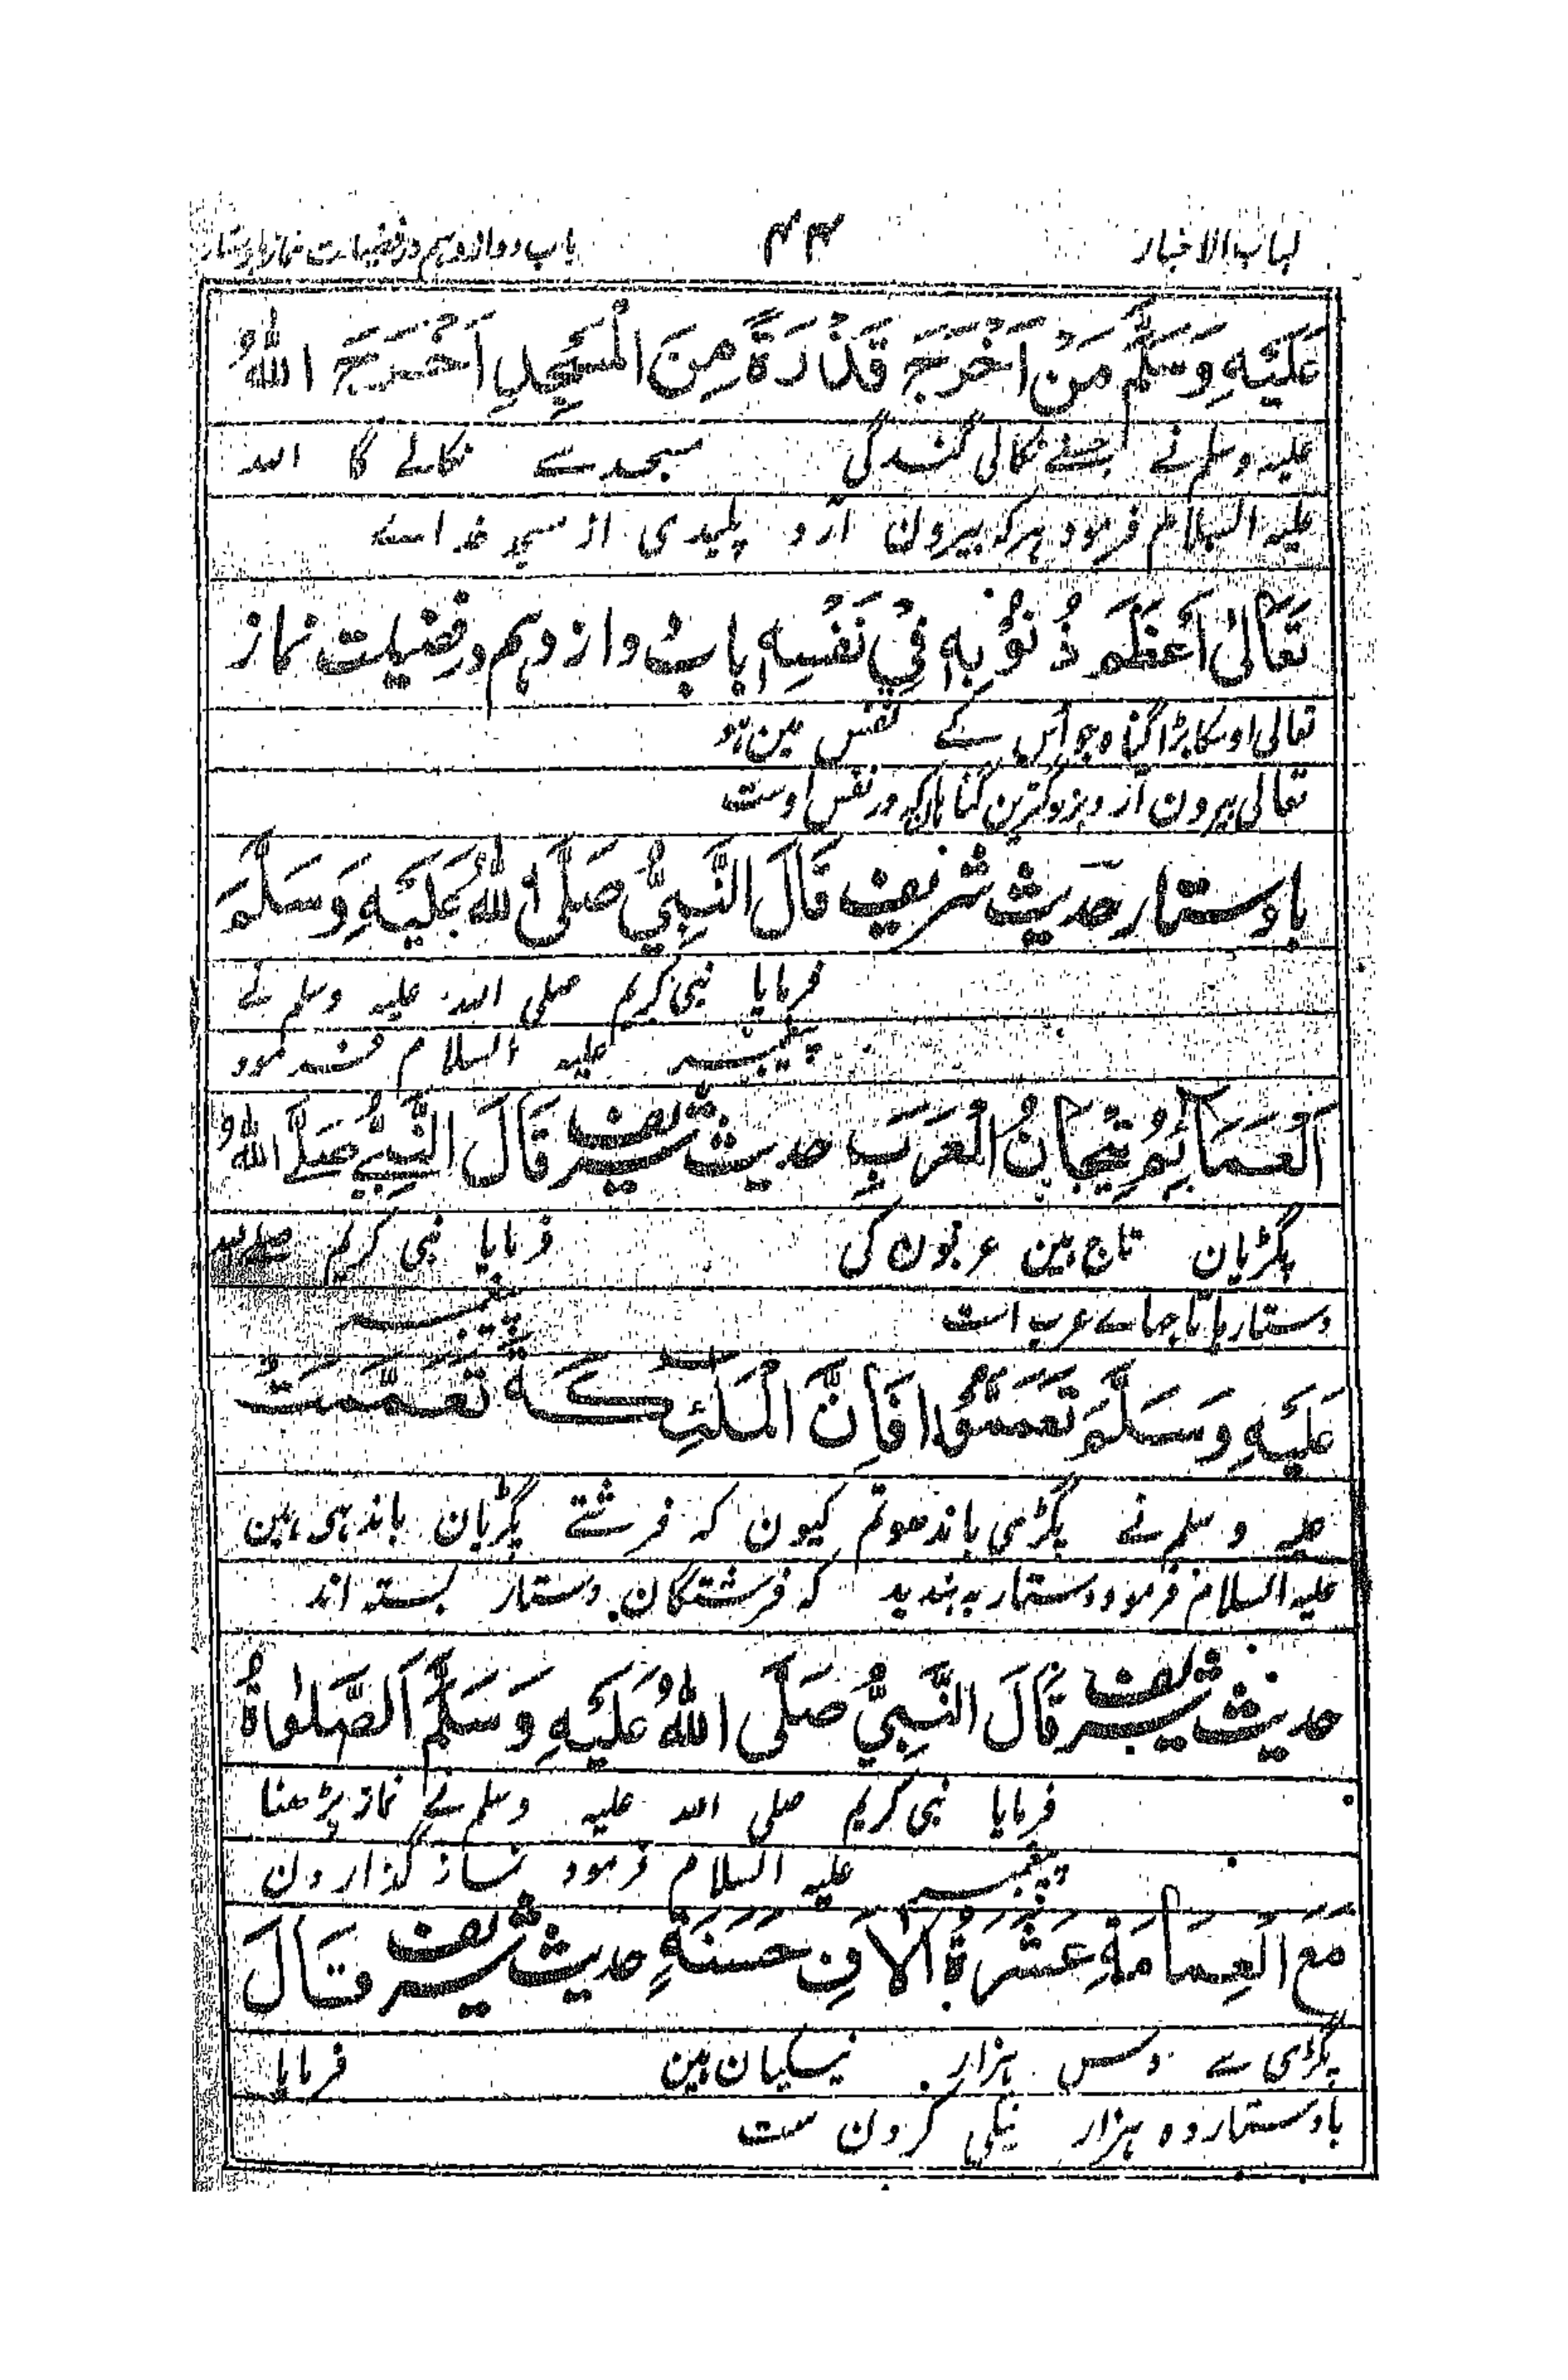 لباب الاخبار ۴۴ باب دوازدہم در فضیلت نماز با دستار
عَلَيْهِ وَسَلَّمَ مَنْ اَخْرَجَ قَذَرَةً مِنَ الْمَسْجِدِ اَخْرَجَ اللّٰهُ
علیہ وسلم نے جسنے نکالی گندگی مسجد سے نکالے گا اللہ
علیہ السلام فرمود ہر کہ بیرون آرد پلیدی از مسجد خداے
تَعَالٰى اَعْظَمَ ذُنُوْبِهِ فِيْ نَفْسِهِ باب دوازدہم در فضیلت نماز
تعالی اوسکا بڑا گناہ جو اُس کے نفس مین ہو
تعالی بیرون آرد بزرگترین گناہان کہ در نفس اوست
با دستار حدیث شریف قَالَ النَّبِيُّ صَلَّى اللّٰهُ عَلَيْهِ وَسَلَّمَ
فرمایا نبی کریم صلی اللہ علیہ وسلم نے
پیغمبر علیہ السلام فرمود
اَلْعَمَائِمُ تِيْجَانُ الْعَرَبِ حدیث شریف قَالَ النَّبِيُّ صَلَّى اللّٰهُ
پگڑیان تاج ہین عربون کی فرمایا نبی کریم صلے اللہ
دستارہا تاجہاے عرب است پیغمبر
عَلَيْهِ وَسَلَّمَ تَعَمَّمُوْا فَاِنَّ الْمَلٰئِكَةَ تَعَمَّمَتْ
علیہ وسلم نے پگڑی باندھو تم کیون کہ فرشتے پگڑیان باندہی ہین
علیہ السلام فرمود دستار بہ بندید کہ فرشتگان دستار بستہ اند
حدیث شریف قَالَ النَّبِيُّ صَلَّى اللّٰهُ عَلَيْهِ وَسَلَّمَ اَلصَّلٰوةُ
فرمایا نبی کریم صلی اللہ علیہ وسلم نے نماز پڑھنا
پیغمبر علیہ السلام فرمود نماز گذاردن
مَعَ الْعِمَامَةِ عَشَرَةُ اٰلَافِ حَسَنَةٍ حدیث شریف قَالَ
پگڑی سے دس ہزار نیکیان ہین فرمایا
با دستار دہ ہزار نیکی کردن ست